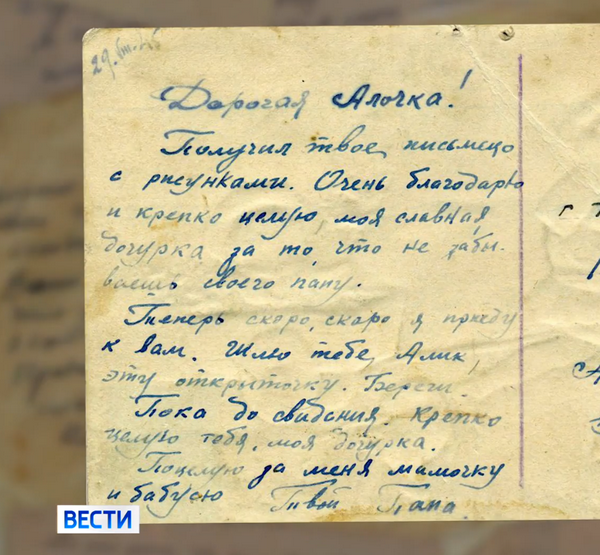 Дорогая Алочка!
Получил твое письмецо
с рисунками. Очень благодарю
и крепко целую, моя славная
дочурка за то, что не забы-
ваешь своего папу.
Теперь скоро, скоро я приеду
к вам. Шлю тебе, Алик,
эту открыточку. Береги.
Пока до свидания. Крепко
целую тебя, моя дочурка.
Поцелую за меня мамочку
и бабусю Твой Папа.
г
ВЕСТИ